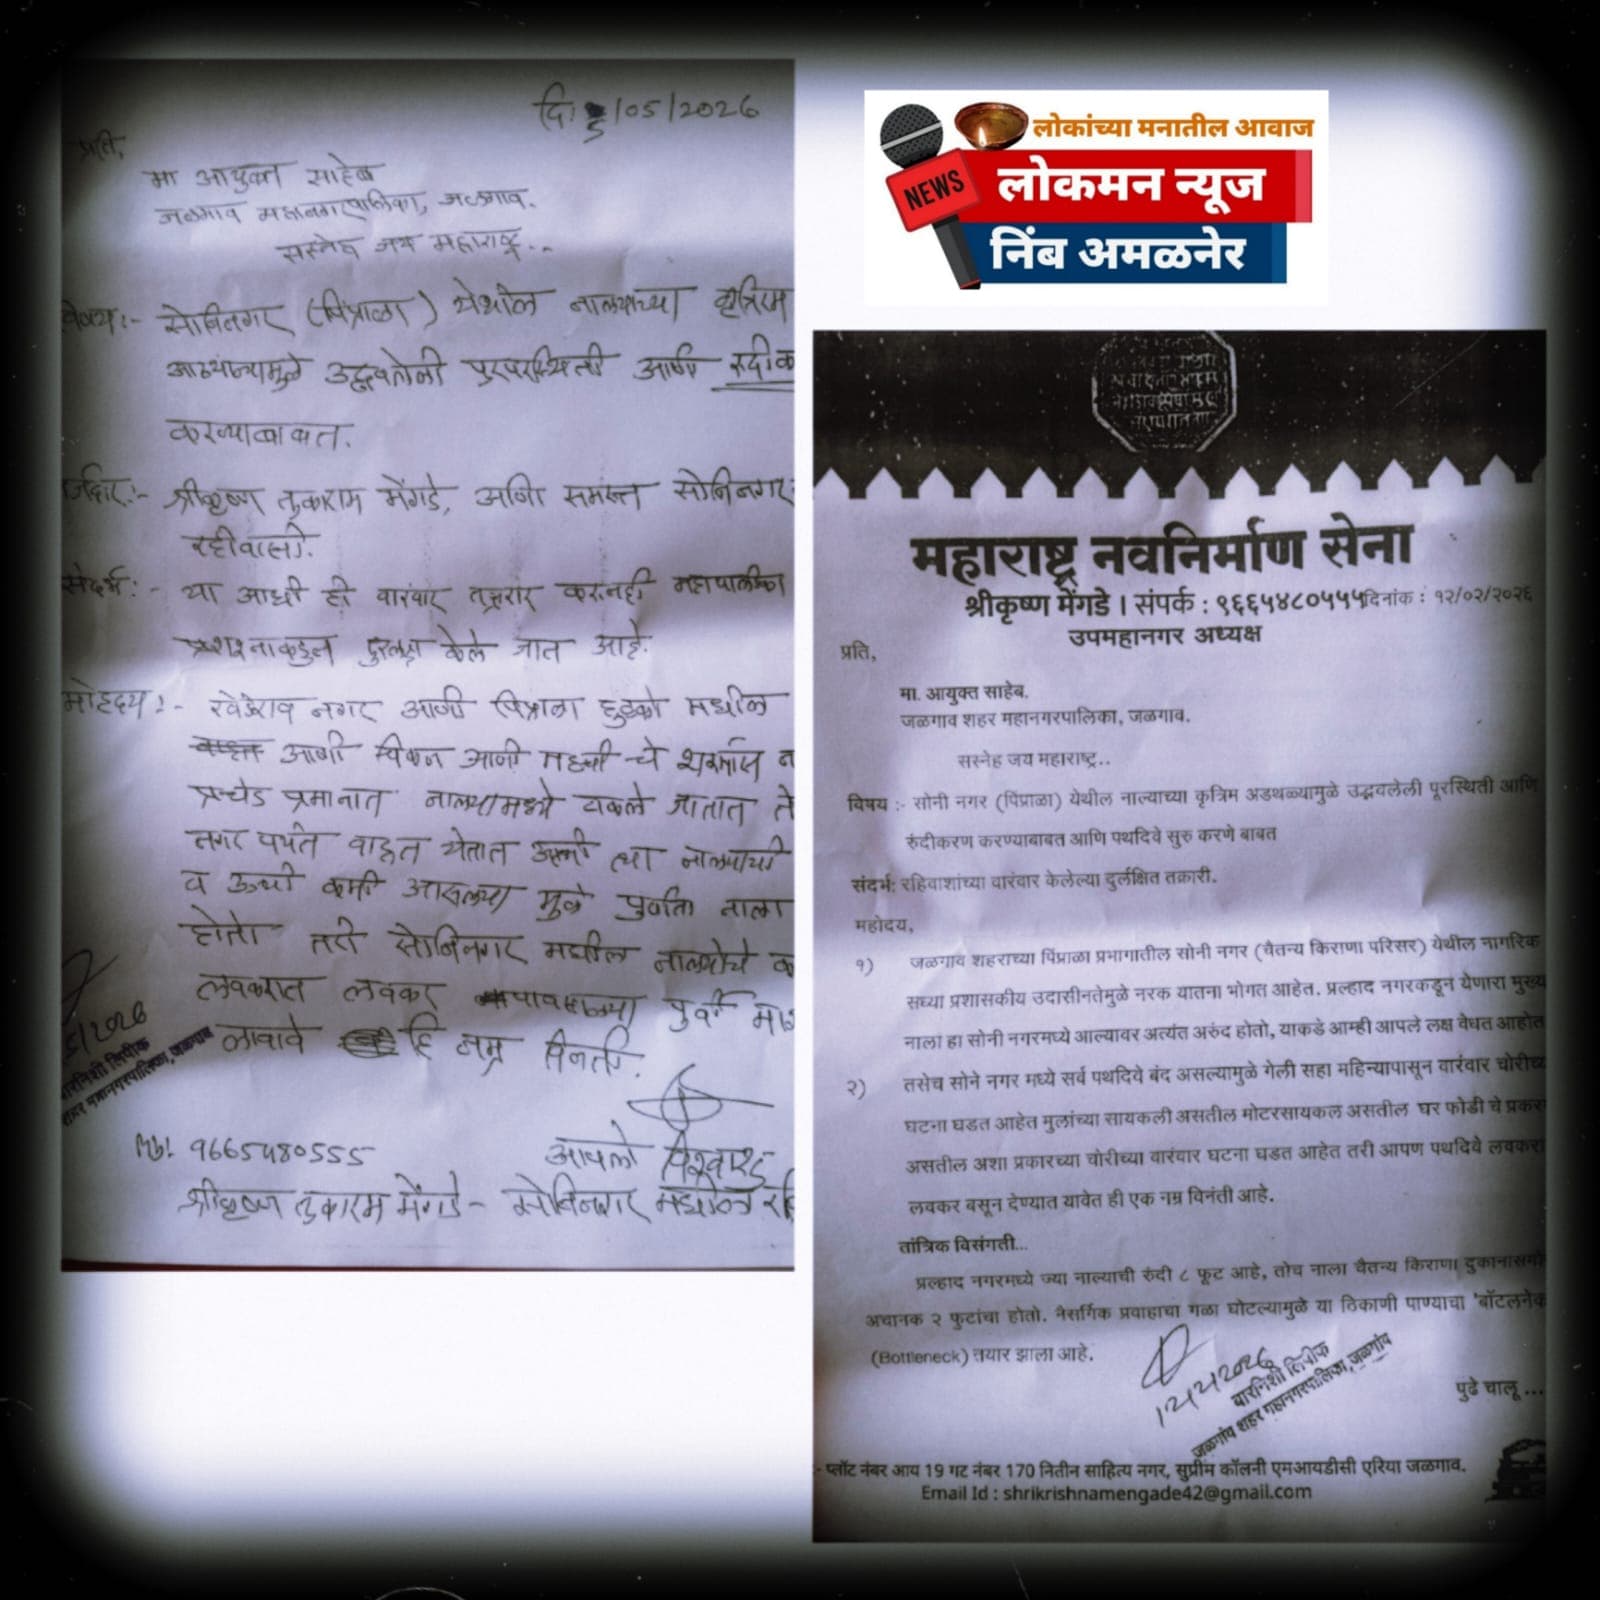 दि. 5/05/2026
प्रति,
मा आयुक्त साहेब
जळगाव महानगरपालिका, जळगाव.
सस्नेह जय महाराष्ट्र..
विषय:- सोनिनगर (पिंप्राळा) येथील नाल्याच्या कृत्रिम
आडथळ्यामुळे उद्भवलेली पुरपरस्थिती आणि रुंदीक
करण्याबाबत.
र्जदार:- श्रीकृष्ण तुकाराम मेंगडे, आणि समस्त सोनिनगर
रहीवासी.
संदर्भ:- या आधी ही वारंवार तक्रार करुनही महापालीका
प्रशासनाकडुन दुरलक्ष केले जात आहे.
मोहदय:- खंडेराव नगर आणी पिंप्राळा हुडको मधील
आणी चिकन आणी मच्छी चे
प्रचंड प्रमानात नाल्यामध्ये टाकले जातात ते
नगर पर्यंत वाहत येतात आणी त्या नाल्याची
व ऊंची कमी असल्या मुळे पुर्णता नाला
होतो तरी सोनिनगर मधील नाल्याचे क
लवकरात लवकर पावसाळ्या पुर्वी मार्ग
लावावे हि नम्र विनंती.
5/2026
बारनिशी लिपीक
शहर महानगरपालिका, जळगाव
Mb! 9665480555
आपलो विश्वासु
श्रीकृष्ण तुकाराम मेंगडे - सोनिनगर मधील रहि
लोकांच्या मनातील आवाज
NEWS
लोकमन न्यूज
निंब अमळनेर
महाराष्ट्र नवनिर्माण सेना
श्रीकृष्ण मेंगडे । संपर्क : ९६६५४८०५५५ दिनांक : १२/०२/२०२६
उपमहानगर अध्यक्ष
प्रति,
मा. आयुक्त साहेब.
जळगाव शहर महानगरपालिका, जळगाव.
सस्नेह जय महाराष्ट्र..
विषय :- सोनी नगर (पिंप्राळा) येथील नाल्याच्या कृत्रिम अडथळ्यामुळे उद्भवलेली पूरस्थिती आणि
रुंदीकरण करण्याबाबत आणि पथदिवे सुरु करणे बाबत
संदर्भ: रहिवाशांच्या वारंवार केलेल्या दुर्लक्षित तक्रारी.
महोदय,
१) जळगाव शहराच्या पिंप्राळा प्रभागातील सोनी नगर (चैतन्य किराणा परिसर) येथील नागरिक
सध्या प्रशासकीय उदासीनतेमुळे नरक यातना भोगत आहेत. प्रल्हाद नगरकडून येणारा मुख्य
नाला हा सोनी नगरमध्ये आल्यावर अत्यंत अरुंद होतो, याकडे आम्ही आपले लक्ष वेधत आहोत
२) तसेच सोने नगर मध्ये सर्व पथदिवे बंद असल्यामुळे गेली सहा महिन्यापासून वारंवार चोरीच्य
घटना घडत आहेत मुलांच्या सायकली असतील मोटरसायकल असतील घर फोडी चे प्रकर
असतील अशा प्रकारच्या चोरीच्या वारंवार घटना घडत आहेत तरी आपण पथदिवे लवकरा
लवकर बसून देण्यात यावेत ही एक नम्र विनंती आहे.
तांत्रिक विसंगती...
प्रल्हाद नगरमध्ये ज्या नाल्याची रुंदी ८ फूट आहे, तोच नाला चैतन्य किराणा दुकानासमो
अचानक २ फुटांचा होतो. नैसर्गिक प्रवाहाचा गळा घोटल्यामुळे या ठिकाणी पाण्याचा 'बॉटलनेक
(Bottleneck) तयार झाला आहे.
12/2/2026
बारनिशी लिपीक
जळगांव शहर महानगरपालिका, जळगांव
पुढे चालू ...
:- प्लॉट नंबर आय 19 गट नंबर 170 नितीन साहित्य नगर, सुप्रीम कॉलनी एमआयडीसी एरिया जळगाव.
Email Id : shrikrishnamengade42@gmail.com